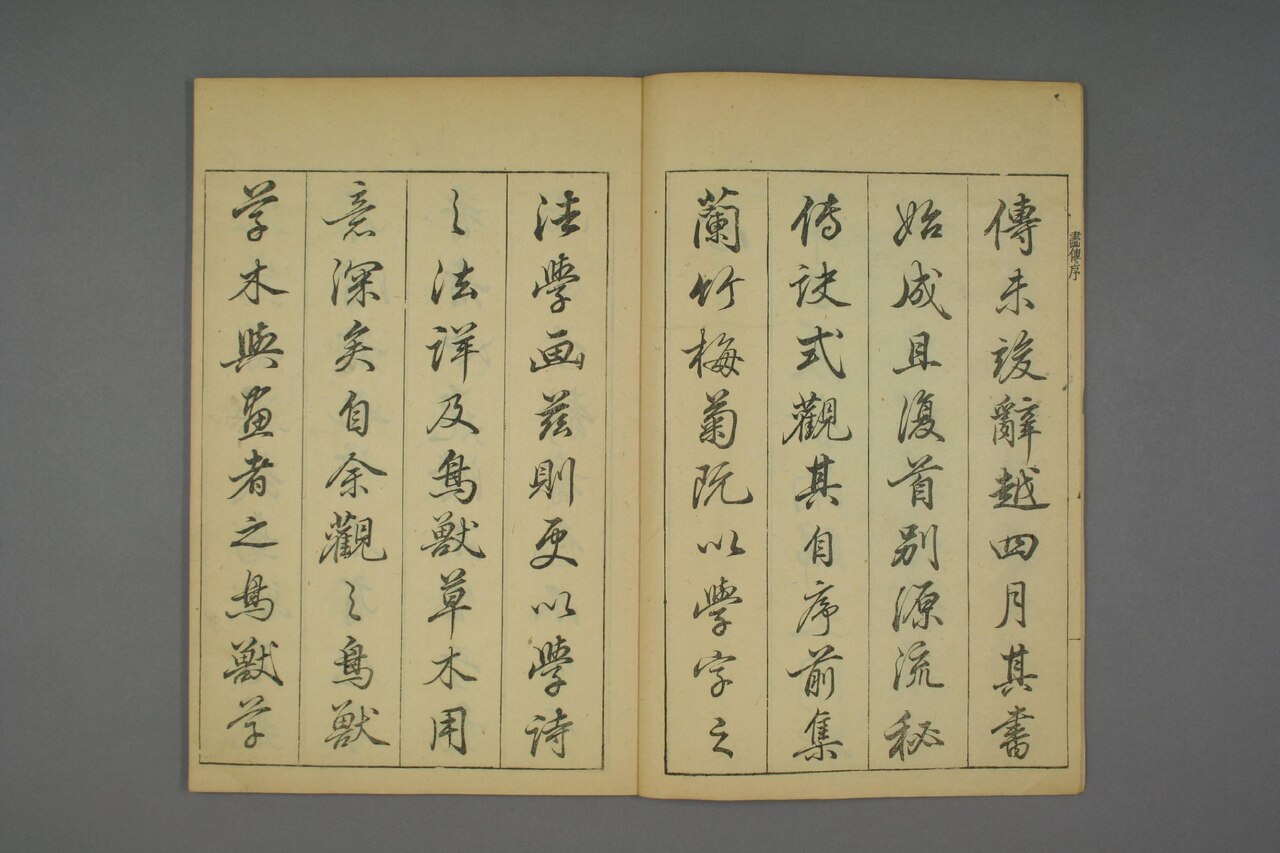 傳未竣辭越四月其書
始成且復首別源流秘
傳訣式觀其自序前集
蘭竹梅菊既以學字之
法學画兹則更以學詩
之法詳及鳥獸草木用
意深矣自余觀之鳥獸
学木與畫者之鳥獸学
畫傳序